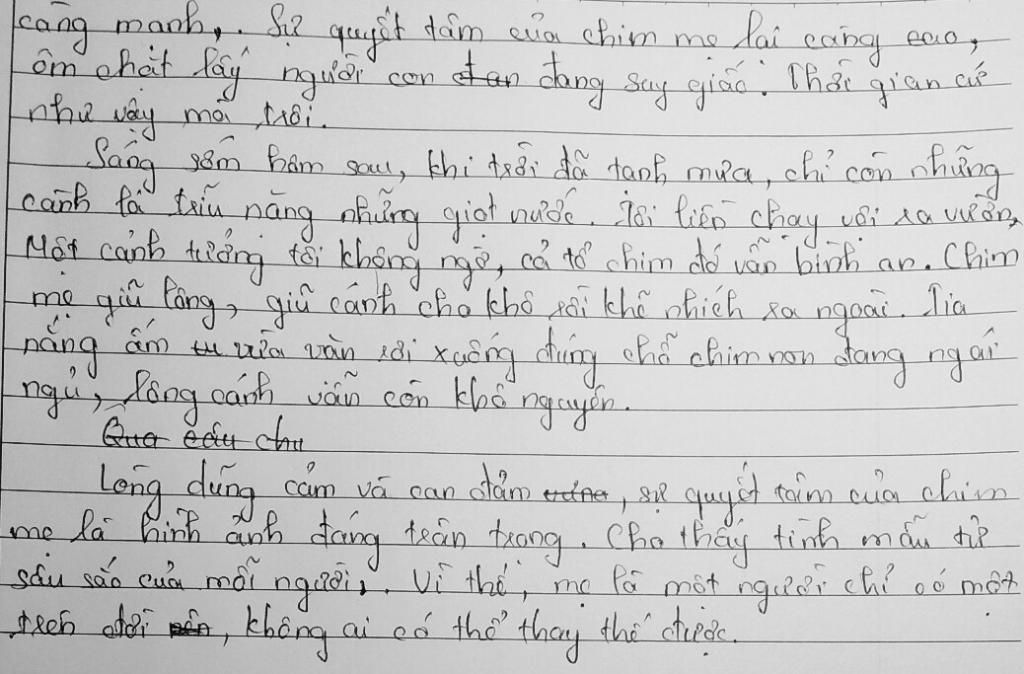 càng mạnh, . Sự quyết tâm của chim mẹ lại càng cao,
ôm chặt lấy người con đan đang say giấc. Thời gian cứ
như vậy mà trôi.
Sáng sớm hôm sau, khi trời đã tạnh mưa, chỉ còn những
cành lá trĩu nặng những giọt nước. Tôi liền chạy vội ra vườn,
Một cảnh tưởng tôi không ngờ, cả tổ chim đó vẫn bình an. Chim
mẹ giũ lông, giũ cánh cho khô rồi khẽ nhích ra ngoài. Tia
nắng ấm tư vừa vặn rơi xuống đúng chỗ chim non đang ngái
ngủ, lông cánh vẫn còn khô nguyên.
Qua câu chu
Lòng dũng cảm và can đảm , sự quyết tâm của chim
mẹ là hình ảnh đáng trân trọng. Cho thấy tình mẫu tử
sâu sắc của mỗi người, . Vì thế, mẹ là một người chỉ có một
trên đời , không ai có thể thay thế được.